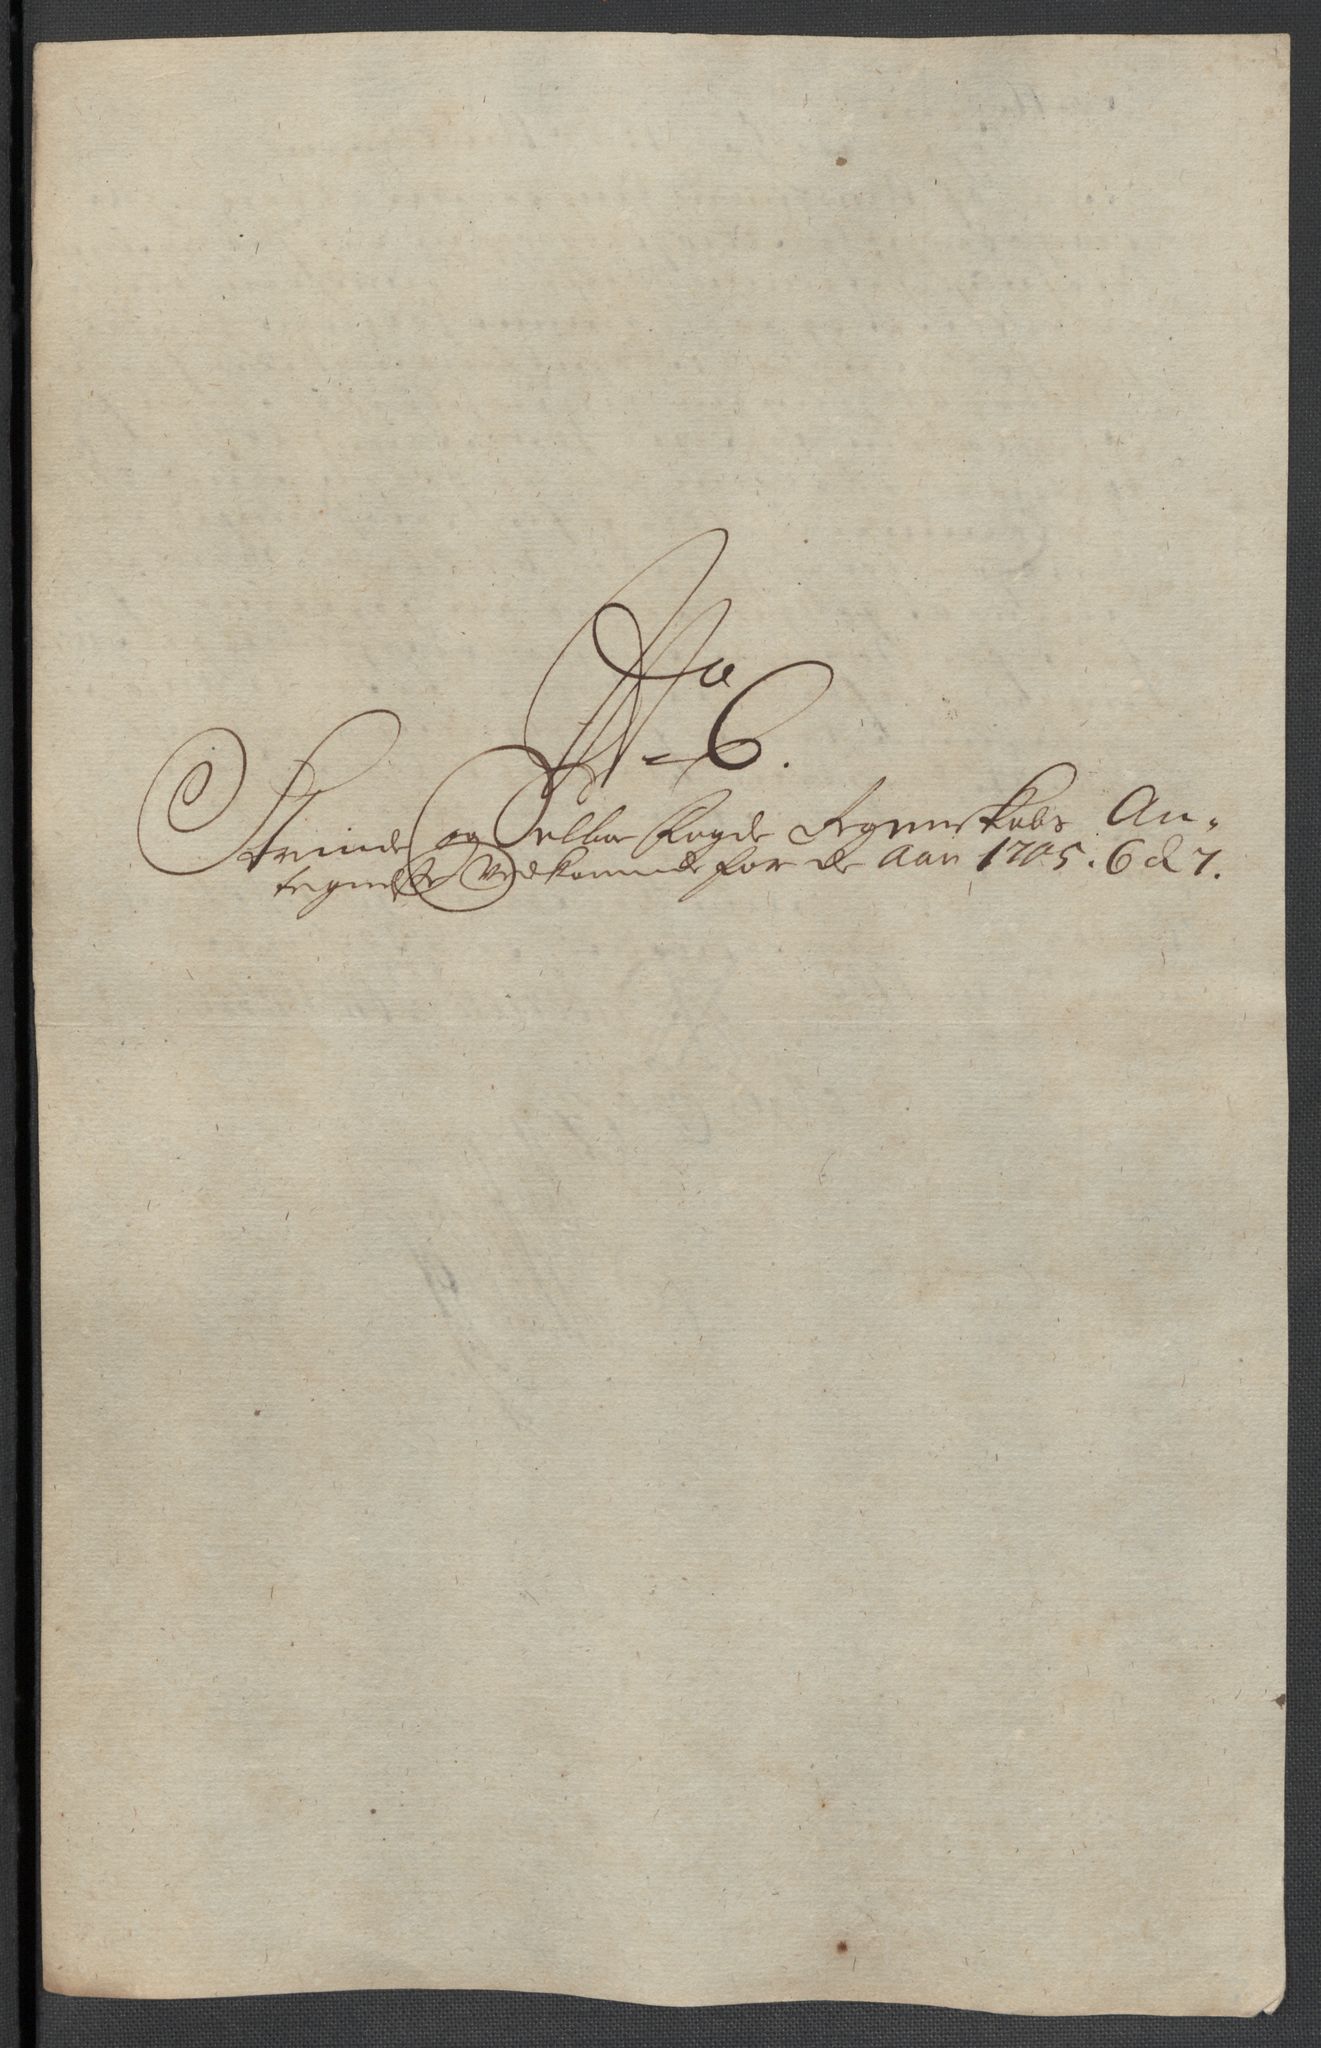 No 6.
Strinde og Selboe Fogde Regenskabs An-
tegnelse Vedkommende for de Aar 1705. 6 & 7.